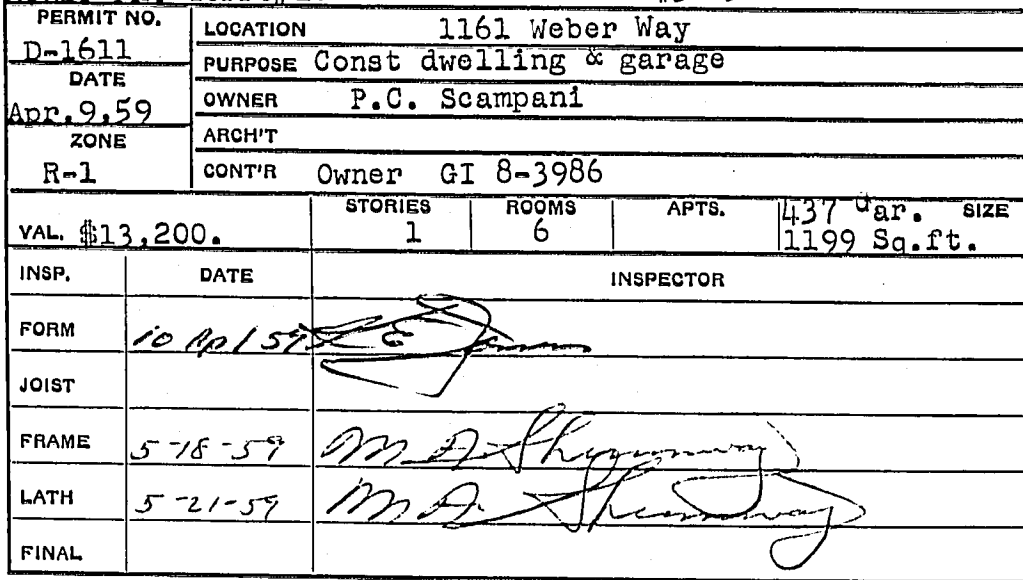 PERMIT NO.
D-1611
DATE
Apr.9,59
ZONE
R-1
LOCATION 1161 Weber Way
PURPOSE Const dwelling & garage
OWNER P.C. Scampani
ARCH'T
CONT'R Owner GI 8-3986
VAL. $13,200.
STORIES
1
ROOMS
6
APTS.
437 Gar. SIZE
1199 Sq.ft.
INSP. DATE INSPECTOR
FORM 10 Apl 59
JOIST
FRAME 5-18-59 M D Shumway
LATH 5-21-59 M D Shumway
FINAL